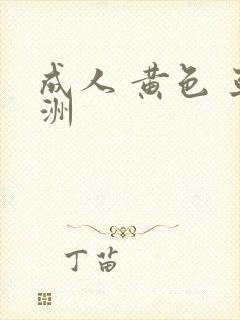 成人 黄色
洲
丁苗